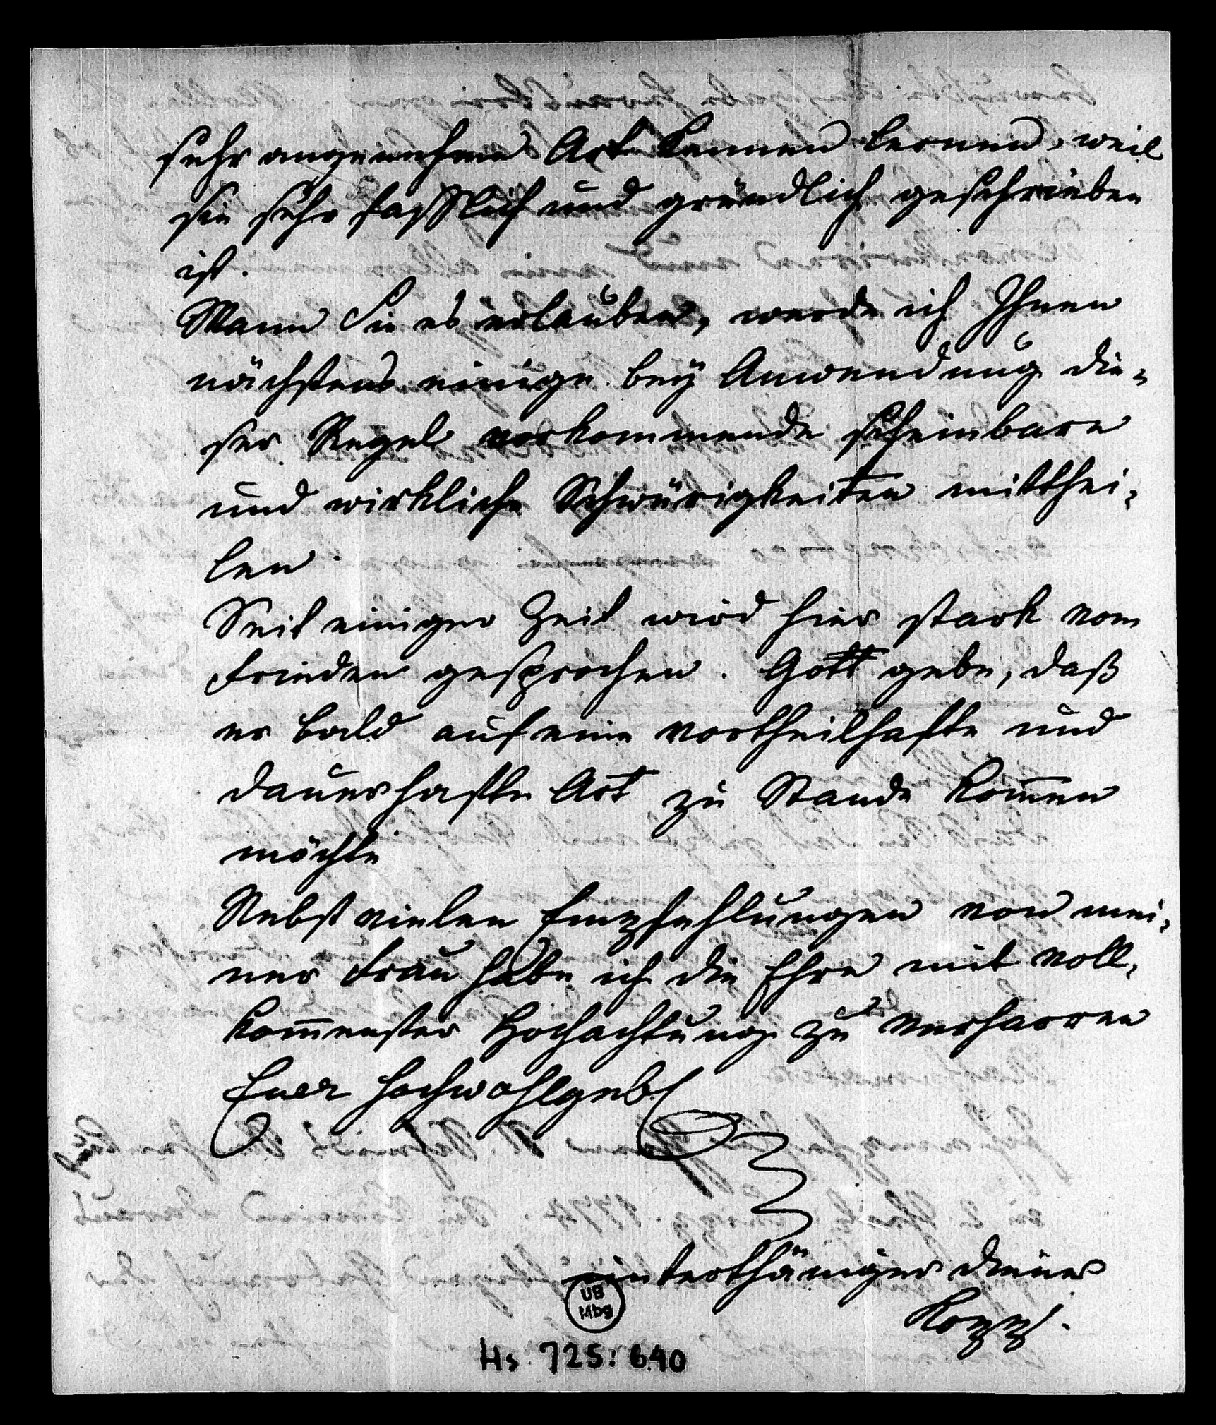 sehr angenehme Art kennen lernen, weil
sie sehr faßlich und gründlich geschrieben
ist.
Wann Sie es erlauben, werde ich Ihnen
nächstens einige bey Anwendung die-
ser Regel vorkommende scheinbare
und wirkliche Schwürigkeiten mitthei-
len
Seit einiger Zeit wird hier stark vom
Frieden gesprochen. Gott gebe, daß
er bald auf eine vortheilhafte und
dauerhafte Art zu Stande kom̅en
möchte
Nebst vielen Empfehlungen von mei-
ner Frau habe ich die Ehre mit voll-
kom̅enster Hochachtung zu verharren
Euer Hochwohlgeb
unterthäniger Diener
Kopp.
UB
Mbg
Hs 725: 640